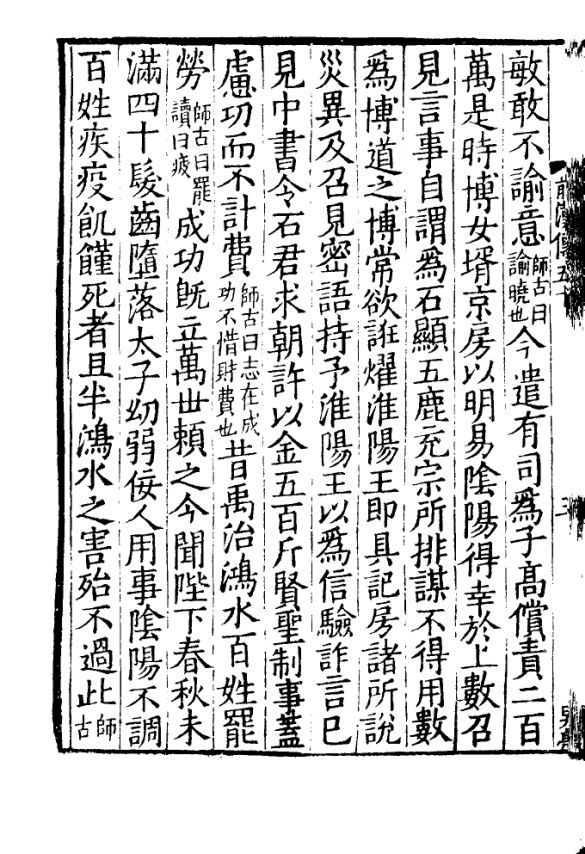 敏敢不諭意師古曰諭曉也今遣有司爲子高償責二百
萬是時博女壻京房以明易陰陽得幸於上數召
見言事自謂爲石顯五鹿充宗所排謀不得用數
爲博道之博常欲誑燿淮陽王即具記房諸所說
災異及召見密語持予淮陽王以爲信驗詐言已
見中書令石君求朝許以金五百斤賢聖制事蓋
慮功而不計費師古曰志在成功不惜財費也昔禹治鴻水百姓罷
勞師古曰罷讀曰疲成功旣立萬世賴之今聞陛下春秋未
滿四十髮齒墮落太子幼弱佞人用事陰陽不調
百姓疾疫飢饉死者且半鴻水之害殆不過此師古